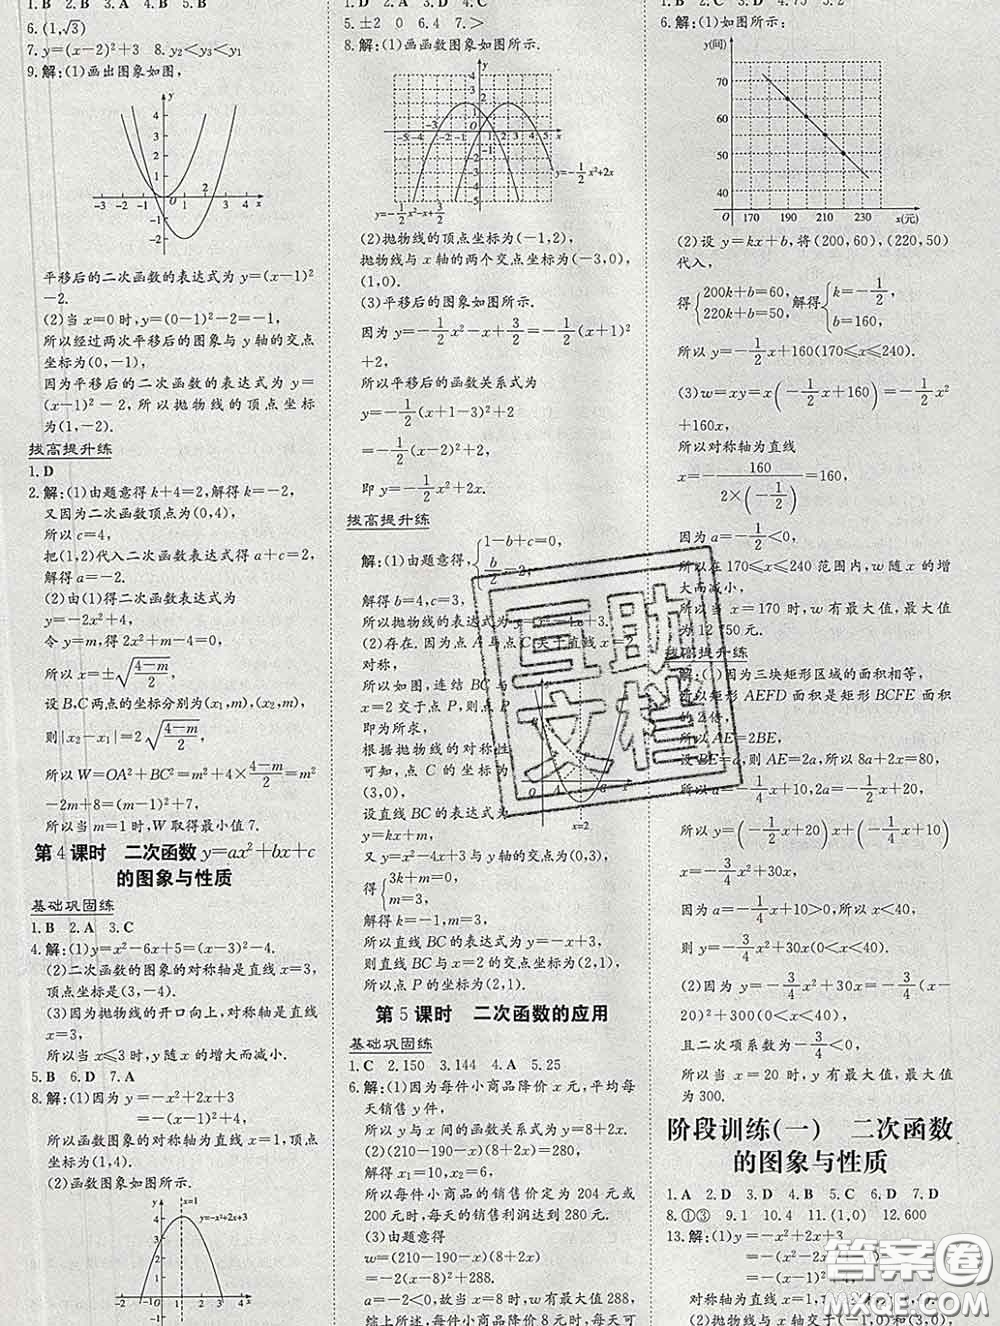 6.(1,√3)
7.y=(x−2)²+3 8.y₂<y₃<y₁
9.解:(1)画出图象如图,
平移后的二次函数的表达式为 y=(x−1)²
−2.
(2)当 x=0 时,y=(0−1)²−2=−1,
所以经过两次平移后的图象与 y 轴的交点
坐标为(0,−1),
因为平移后的二次函数的表达式为 y=
(x−1)²−2,所以抛物线的顶点坐标
为(1,−2).
拔高提升练
1.D
2.解:(1)由题意得 k+4=2,解得 k=−2,
又因为二次函数顶点为(0,4),
所以 c=4,
把(1,2)代入二次函数表达式得 a+c=2,
解得 a=−2.
(2)由(1)得二次函数的表达式为
y=−2x²+4,
令 y=m,得 2x²+m−4=0,
所以 x=±√((4−m)/2),
设 B,C 两点的坐标分别为(x₁,m),(x₂,m),
则|x₂−x₁|=2√((4−m)/2),
所以 W=OA²+BC²=m²+4×(4−m)/2=m²
−2m+8=(m−1)²+7,
所以当 m=1 时,W 取得最小值 7.
第 4 课时 二次函数 y=ax²+bx+c
的图象与性质
基础巩固练
1.B 2.A 3.C
4.解:(1)y=x²−6x+5=(x−3)²−4.
(2)二次函数的图象的对称轴是直线 x=3,
顶点坐标是(3,−4).
(3)因为抛物线的开口向上,对称轴是直线
x=3,
所以当 x≤3 时,y 随 x 的增大而减小.
5.B 6.D 7.A
8.解:(1)因为 y=−x²+2x+3
=−(x−1)²+4,
所以函数图象的对称轴为直线 x=1,顶点
坐标为(1,4).
(2)函数图象如图所示.
x=1
y=−x²+2x+3
5.±2 0 6.4 7.>
8.解:(1)画函数图象如图所示.
y=−1/2x²+2x
y=−1/2x²−x+3/2
(2)抛物线的顶点坐标为(−1,2),
抛物线与 x 轴的两个交点坐标为(−3,0),
(1,0).
(3)平移后的图象如图所示.
因为 y=−1/2x²−x+3/2=−1/2(x+1)²
+2,
所以平移后的函数关系式为
y=−1/2(x+1−3)²+2
=−1/2(x−2)²+2,
即 y=−1/2x²+2x.
拔高提升练
解:(1)由题意得,{1−b+c=0, b/2=2,
解得 b=4,c=3,
所以抛物线的表达式为 y=x²−4x+3.
(2)存在.因为点 A 与点 C 关于直线 x=2
对称,
所以如图,连结 BC 与
x=2 交于点 P,则点 P
即为所求,
根据抛物线的对称性
可知,点 C 的坐标为
(3,0),
设直线 BC 的表达式为
y=kx+m,
x=2
又 y=x²−4x+3 与 y 轴的交点为(0,3),
得{3k+m=0, m=3,
解得 k=−1,m=3,
所以直线 BC 的表达式为 y=−x+3,
则直线 BC 与 x=2 的交点坐标为(2,1),
所以点 P 的坐标为(2,1).
第 5 课时 二次函数的应用
基础巩固练
1.C 2.150 3.144 4.A 5.25
6.解:(1)因为每件小商品降价 x 元,平均每
天销售 y 件,
所以 y 与 x 间的函数关系式为 y=8+2x.
(2)(210−190−x)(8+2x)=280,
解得 x₁=10,x₂=6.
所以每件小商品的销售价定为 204 元或
200 元时,每天的销售利润达到 280 元.
(3)由题意得
w=(210−190−x)(8+2x)
=−2(x−8)²+288.
a=−2<0,故当 x=8 时,w 有最大值 288,
6.解:(1)如图所示.
y(间)
70
60
50
40
30
170 190 210 230
x(元)
(2)设 y=kx+b,将(200,60),(220,50)
代入,
得{200k+b=60, 220k+b=50,解得{k=−1/2, b=160,
所以 y=−1/2x+160(170≤x≤240).
(3)w=xy=x(−1/2x+160)=−1/2x²
+160x,
所以对称轴为直线
x=−160/(2×(−1/2))=160,
因为 a=−1/2<0,
所以在 170≤x≤240 范围内,w 随 x 的增
大而减小,
故当 x=170 时,w 有最大值,最大值
为 12 750 元.
拔高提升练
解:(1)因为三块矩形区域的面积相等,
所以矩形 AEFD 面积是矩形 BCFE 面积
的 2 倍,
所以 AE=2BE,
设 BE=a,则 AE=2a,所以 8a+2x=80,
所以 a=−1/4x+10,2a=−1/2x+20,
所以 y=(−1/2x+20)x+(−1/4x+10)
x=−3/4x²+30x,
因为 a=−1/4x+10>0,所以 x<40,
则 y=−3/4x²+30x(0<x<40).
(2)因为 y=−3/4x²+30x=−3/4(x−
20)²+300(0<x<40),
且二次项系数为−3/4<0,
所以当 x=20 时,y 有最大值,最大值
为 300.
阶段训练(一) 二次函数
的图象与性质
1.A 2.D 3.D 4.B 5.C 6.D 7.D
8.①③ 9.1 10.4 11.(1,0) 12.600
13.解:(1)y=−x²+2x+3
互助文档
答案圈
MXQE.COM